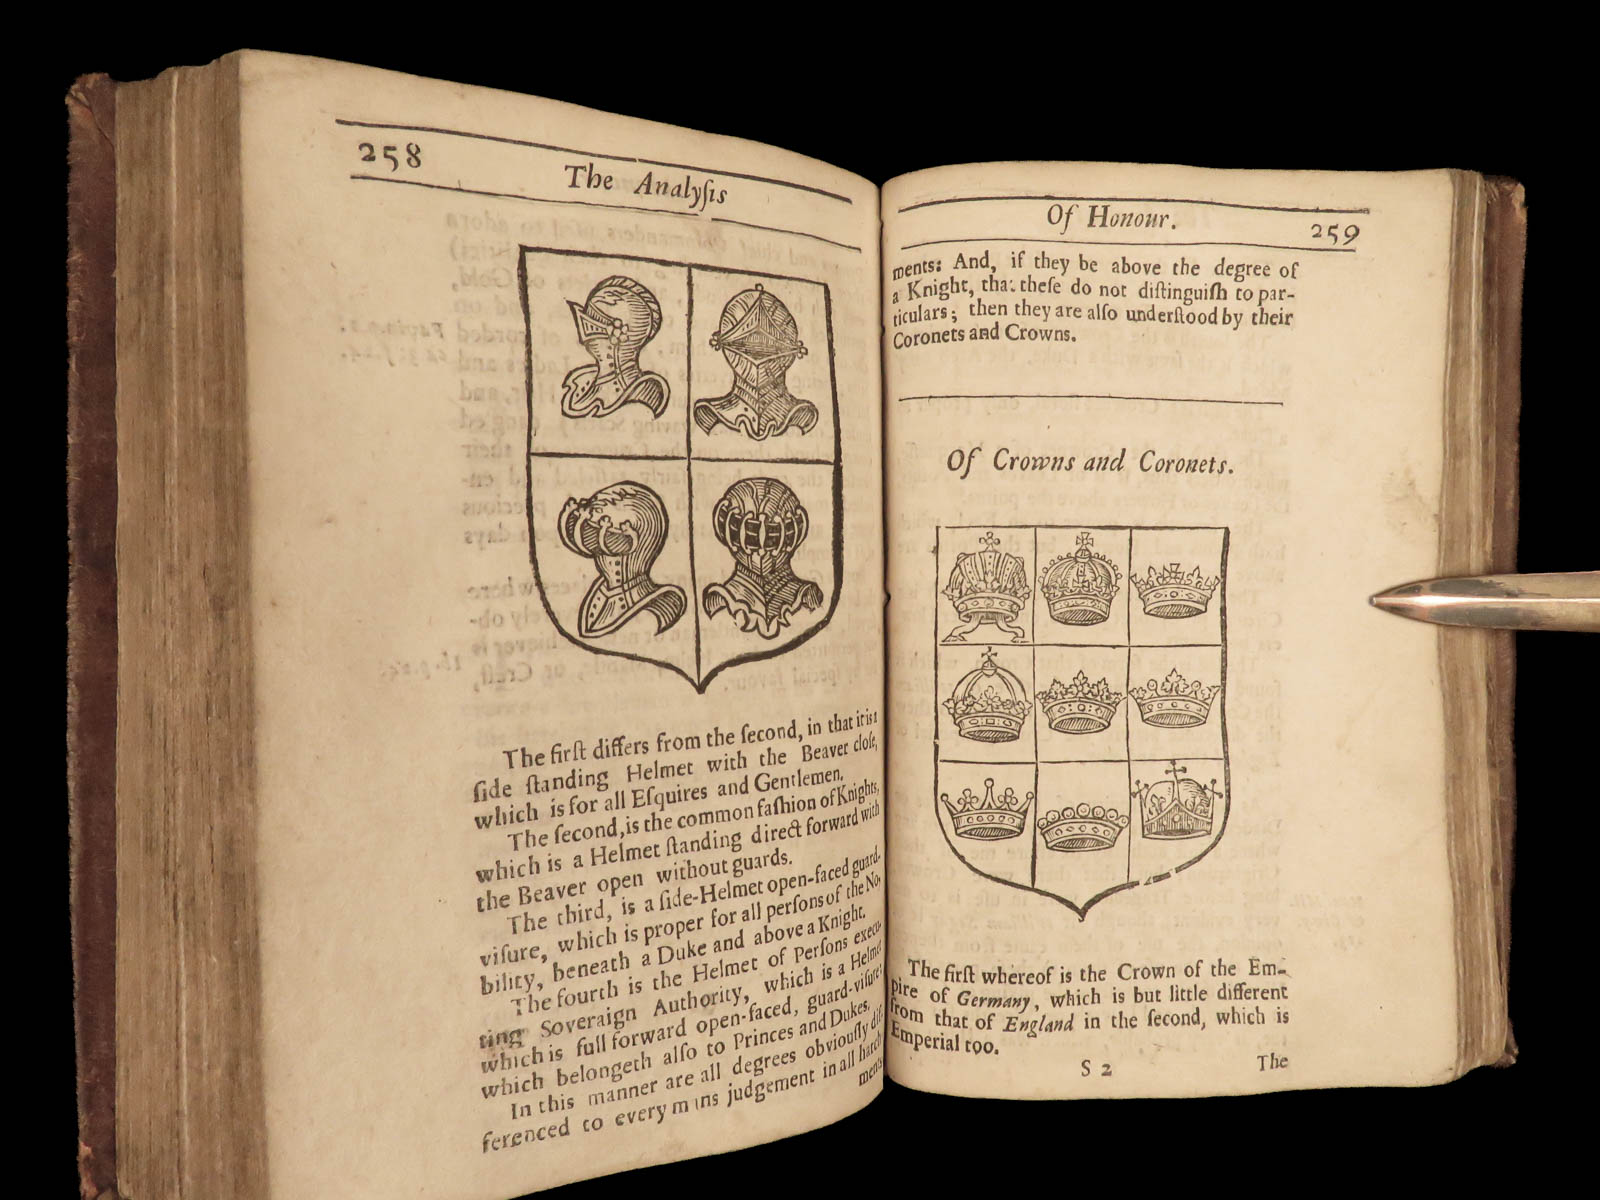 258
The Analyſis
The firſt differs from the ſecond, in that it is a
ſide ſtanding Helmet with the Beaver cloſe,
which is for all Eſquires and Gentlemen.
The ſecond, is the common faſhion of Knights,
which is a Helmet ſtanding direct forward with
the Beaver open without guards.
The third, is a ſide-Helmet open-faced guard-
viſure, which is proper for all perſons of the No-
bility, beneath a Duke and above a Knight.
The fourth is the Helmet of Perſons execu-
ting Soveraign Authority, which is a Helmet
which is full forward open-faced, guard-viſure:
which belongeth alſo to Princes and Dukes.
In this manner are all degrees obviouſly dif-
ferenced to every mans judgement in all hatch
ments
Of Honour.
259
ments: And, if they be above the degree of
a Knight, that theſe do not diſtinguiſh to par-
ticulars; then they are alſo underſtood by their
Coronets and Crowns.
Of Crowns and Coronets.
The firſt whereof is the Crown of the Em-
pire of Germany, which is but little different
from that of England in the ſecond, which is
Emperial too.
S 2
The